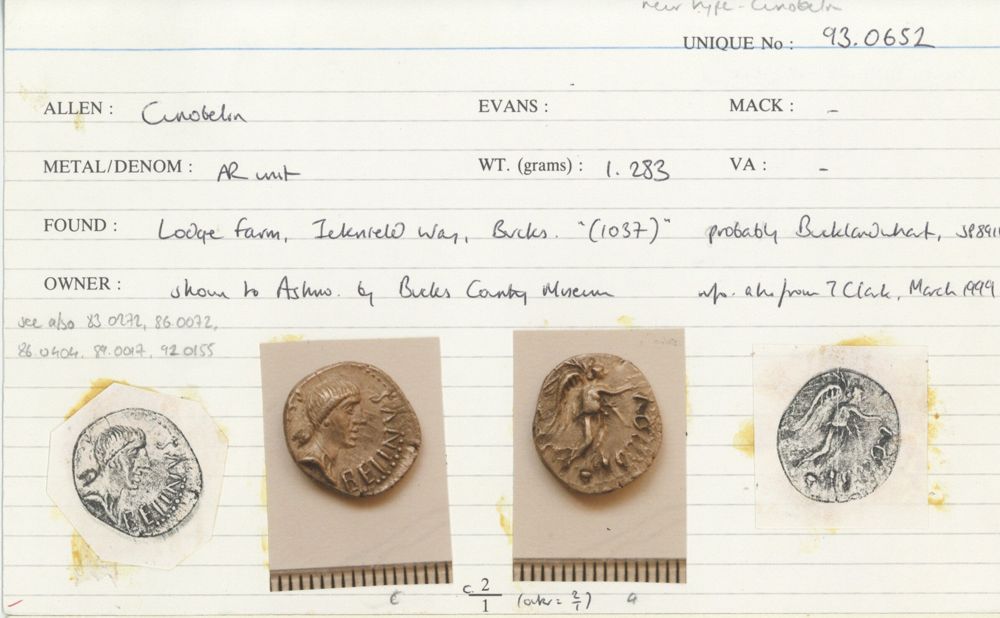 new type - Cunobelin
UNIQUE No : 93.0652
ALLEN : Cunobelin EVANS : MACK : -
METAL/DENOM : AR unit WT. (grams) : 1.283 VA : -
FOUND : Lodge Farm, Icknield Way, Bucks. "(1037)" probably Buckland Wharf, SP8911
OWNER : shown to Ashmo. by Bucks County Museum info. also from T Clark, March 1999
see also 83.0272, 86.0072,
86.0404, 89.0017, 92.0155
c. 2/1 (other = 2/1)